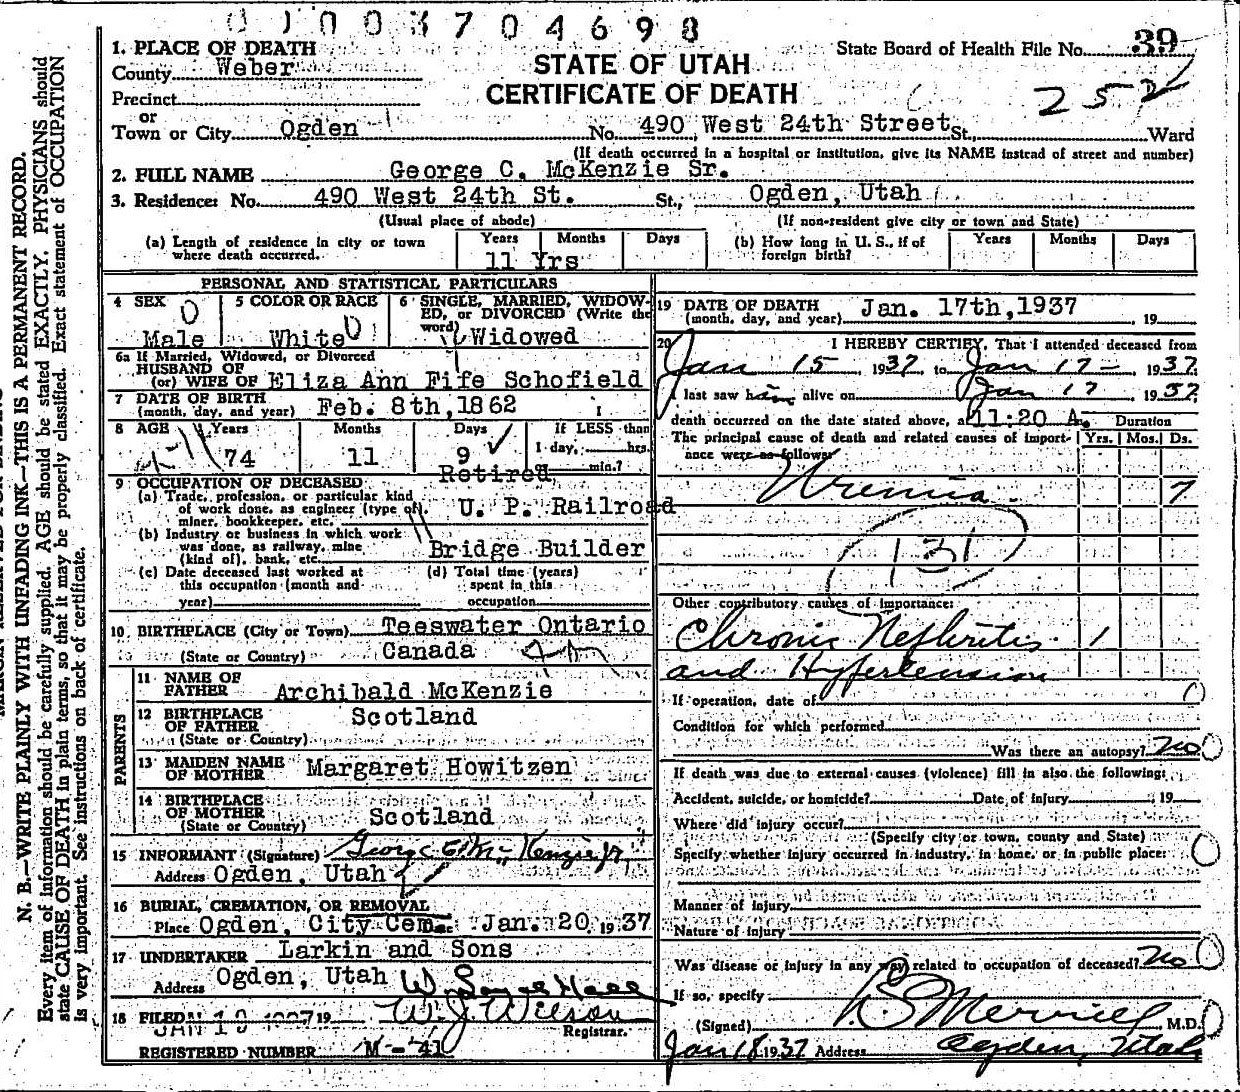 0 1 0 0 3 7 0 4 6 9 8
1. PLACE OF DEATH
County Weber
Precinct
or
Town or City Ogden
STATE OF UTAH
CERTIFICATE OF DEATH
State Board of Health File No. 39
252
No. 490 West 24th Street St. Ward
(If death occurred in a hospital or institution, give its NAME instead of street and number)
2. FULL NAME George C. McKenzie Sr.
3. Residence: No. 490 West 24th St. St., Ogden, Utah
(Usual place of abode) (If non-resident give city or town and State)
(a) Length of residence in city or town where death occurred. Years Months Days
11 Yrs
(b) How long in U. S., if of foreign birth? Years Months Days
PERSONAL AND STATISTICAL PARTICULARS
4 SEX
Male
5 COLOR OR RACE
White
6 SINGLE, MARRIED, WIDOWED, or DIVORCED (Write the word)
Widowed
6a If Married, Widowed, or Divorced
HUSBAND OF
(or) WIFE OF Eliza Ann Fife Schofield
7 DATE OF BIRTH
(month, day, and year) Feb. 8th, 1862
8 AGE Years Months Days If LESS than
1 day, hrs.
74 11 9
min.?
9 OCCUPATION OF DECEASED Retired
(a) Trade, profession, or particular kind
of work done, as engineer (type of). U. P. Railroad
miner, bookkeeper, etc.
(b) Industry or business in which work
was done, as railway, mine
(kind of), bank, etc. Bridge Builder
(c) Date deceased last worked at
this occupation (month and
year)
(d) Total time (years)
spent in this
occupation
10 BIRTHPLACE (City or Town) Teeswater Ontario
(State or Country) Canada
PARENTS
11 NAME OF
FATHER Archibald McKenzie
12 BIRTHPLACE
OF FATHER Scotland
(State or Country)
13 MAIDEN NAME
OF MOTHER Margaret Howitzen
14 BIRTHPLACE
OF MOTHER
(State or Country) Scotland
15 INFORMANT (Signature) George C. McKenzie Jr.
Address Ogden, Utah
16 BURIAL, CREMATION, OR REMOVAL
Place Ogden, City Cem. Jan. 20, 1937
17 UNDERTAKER Larkin and Sons
Address Ogden, Utah
18 FILED JAN 19 1937 19 W. J. Wilson
Registrar.
REGISTERED NUMBER M-41
19 DATE OF DEATH
(month, day, and year) Jan. 17th, 1937, 19
20 I HEREBY CERTIFY, That I attended deceased from
Jan 15 1937, to Jan 17 1937.
I last saw him alive on Jan 17 1937
death occurred on the date stated above, at 11:20 A. Duration
The principal cause of death and related causes of importance were as follows: Yrs. Mos. Ds.
Uremia 7
131
Other contributory causes of importance:
Chronic Nephritis 1
and Hypertension
If operation, date of
Condition for which performed
Was there an autopsy? no
If death was due to external causes (violence) fill in also the following:
Accident, suicide, or homicide? Date of injury , 19
Where did injury occur?
(Specify city or town, county and State)
Specify whether injury occurred in industry, in home, or in public place:
Manner of injury
Nature of injury
Was disease or injury in any way related to occupation of deceased? no
If so, specify
(Signed) Merrill M.D.
Jan 18 1937 Address Ogden, Utah
N. B.—WRITE PLAINLY WITH UNFADING INK—THIS IS A PERMANENT RECORD.
Every item of information should be carefully supplied. AGE should be stated EXACTLY. PHYSICIANS should
state CAUSE OF DEATH in plain terms, so that it may be properly classified. Exact statement of OCCUPATION
is very important. See instructions on back of certificate.